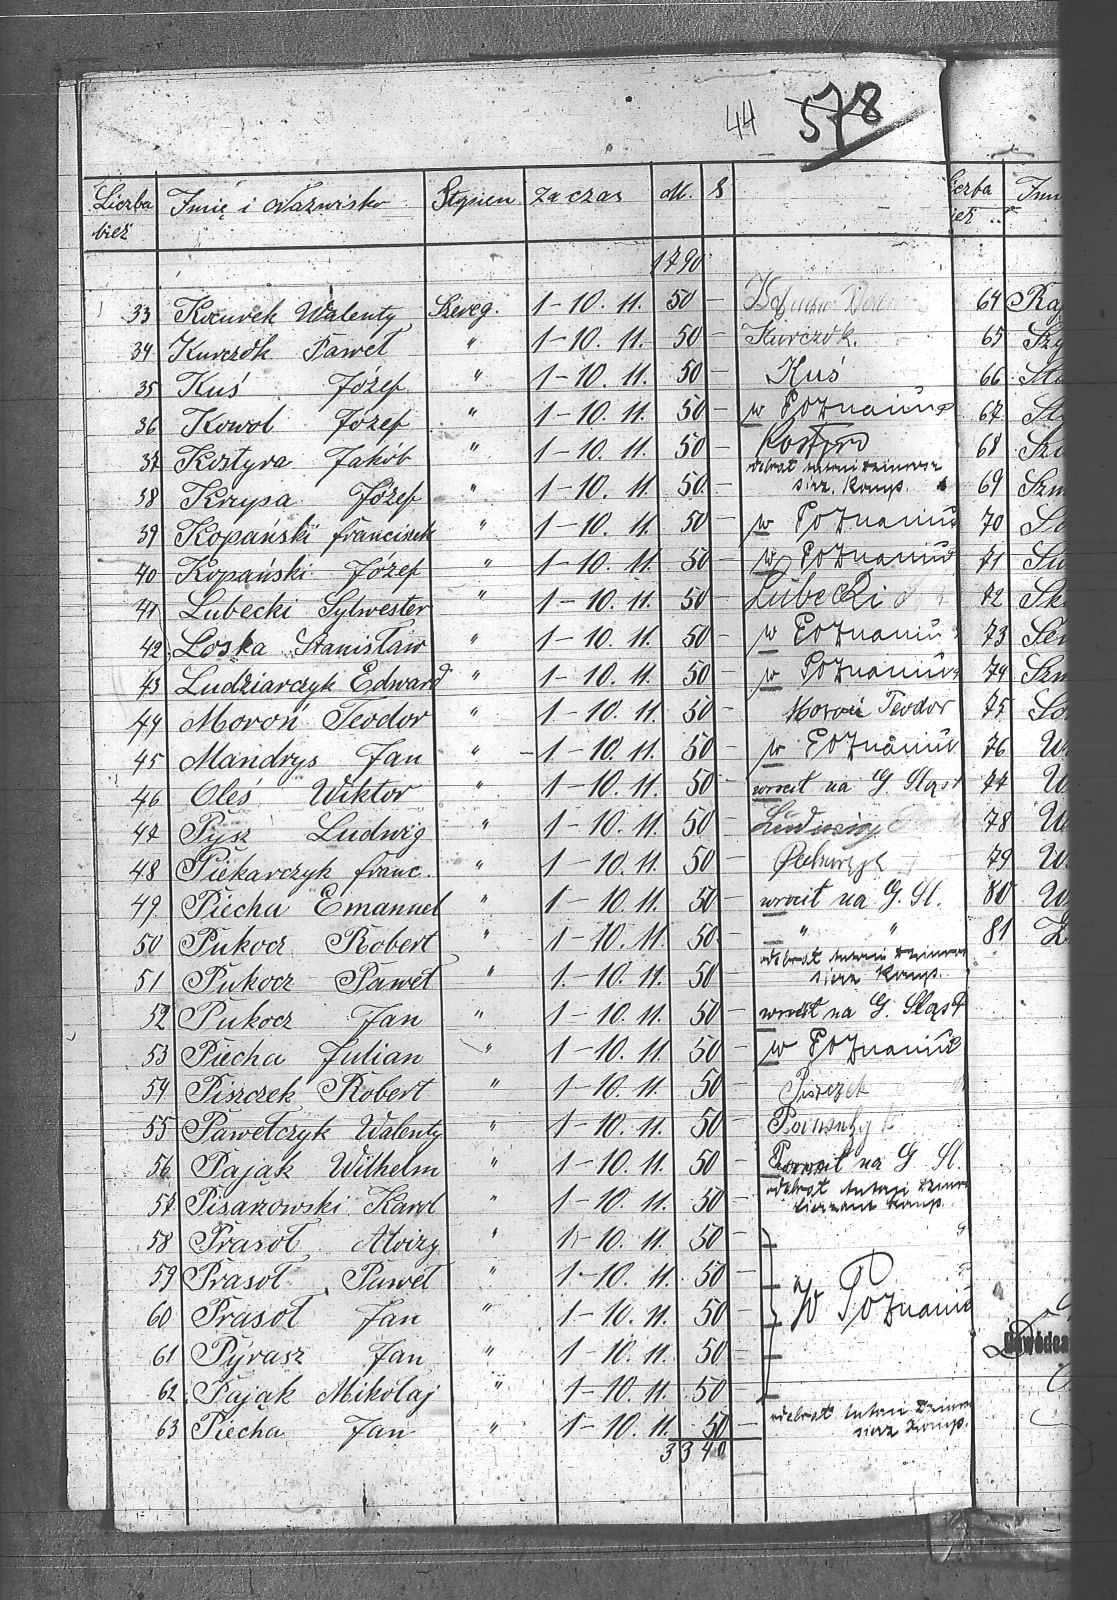 44 578
Liczba bież Imię i Nazwisko Stopień za czas M. S
Liczba bież
1790
33 Kocurek Walenty Szereg. 1-10. 11. 50 - 64
34 Kurczök Paweł " 1-10. 11. 50 - Kurczok. 65
35 Kuś Józef " 1-10. 11. 50 - Kuś 66
36 Kowol Józef " 1-10. 11. 50 - w Poznaniu 67
37 Kostyra Jakób " 1-10. 11. 50 - 68
38 Krzysa Józef " 1-10. 11. 50 - odebrał sierż. komp. 69
39 Kopański Franciszek " 1-10. 11. 50 - w Poznaniu 70
40 Kopański Józef " 1-10. 11. 50 - w Poznaniu 71
41 Lubecki Sylwester " 1-10. 11. 50 - Lubecki 72
42 Loska Stanisław " 1-10. 11. 50 - w Poznaniu 73
43 Ludziarczyk Edward " 1-10. 11. 50 - w Poznaniu 74
44 Moroń Teodor " 1-10. 11. 50 - Moroń Teodor 75
45 Mandrys Jan " 1-10. 11. 50 - w Poznaniu 76
46 Oleś Wiktor " 1-10. 11. 50 - wrócił na G Sląsk 77
47 Pysz Ludwig " 1-10. 11. 50 - 78
48 Piekarczyk Franc. " 1-10. 11. 50 - 79
49 Piecha Emanuel " 1-10. 11. 50 - wrócił na G. Sl. 80
50 Pukocz Robert " 1-10. 11. 50 - " " 81
51 Pukocz Paweł " 1-10. 11. 50 - odebrał sierż komp.
52 Pukocz Jan " 1-10. 11. 50 - wrócił na G. Sląsk
53 Piecha Julian " 1-10. 11. 50 - w Poznaniu
54 Piszczek Robert " 1-10. 11. 50 - Piszczek
55 Pawełczyk Walenty " 1-10. 11. 50 -
56 Pająk Wilhelm " 1-10. 11. 50 - na G Sl.
57 Pisarzowski Karol " 1-10. 11. 50 - odebrał sierżant komp.
58 Prasoł Alojzy " 1-10. 11. 50 -
59 Prasoł Paweł " 1-10. 11. 50 -
60 Prasoł Jan " 1-10. 11. 50 - w Poznaniu
61 Pyrasz Jan " 1-10. 11. 50 -
62 Pająk Mikołaj " 1-10. 11. 50 -
63 Piecha Jan " 1-10. 11. 50 - odebrał sierż komp.
3340